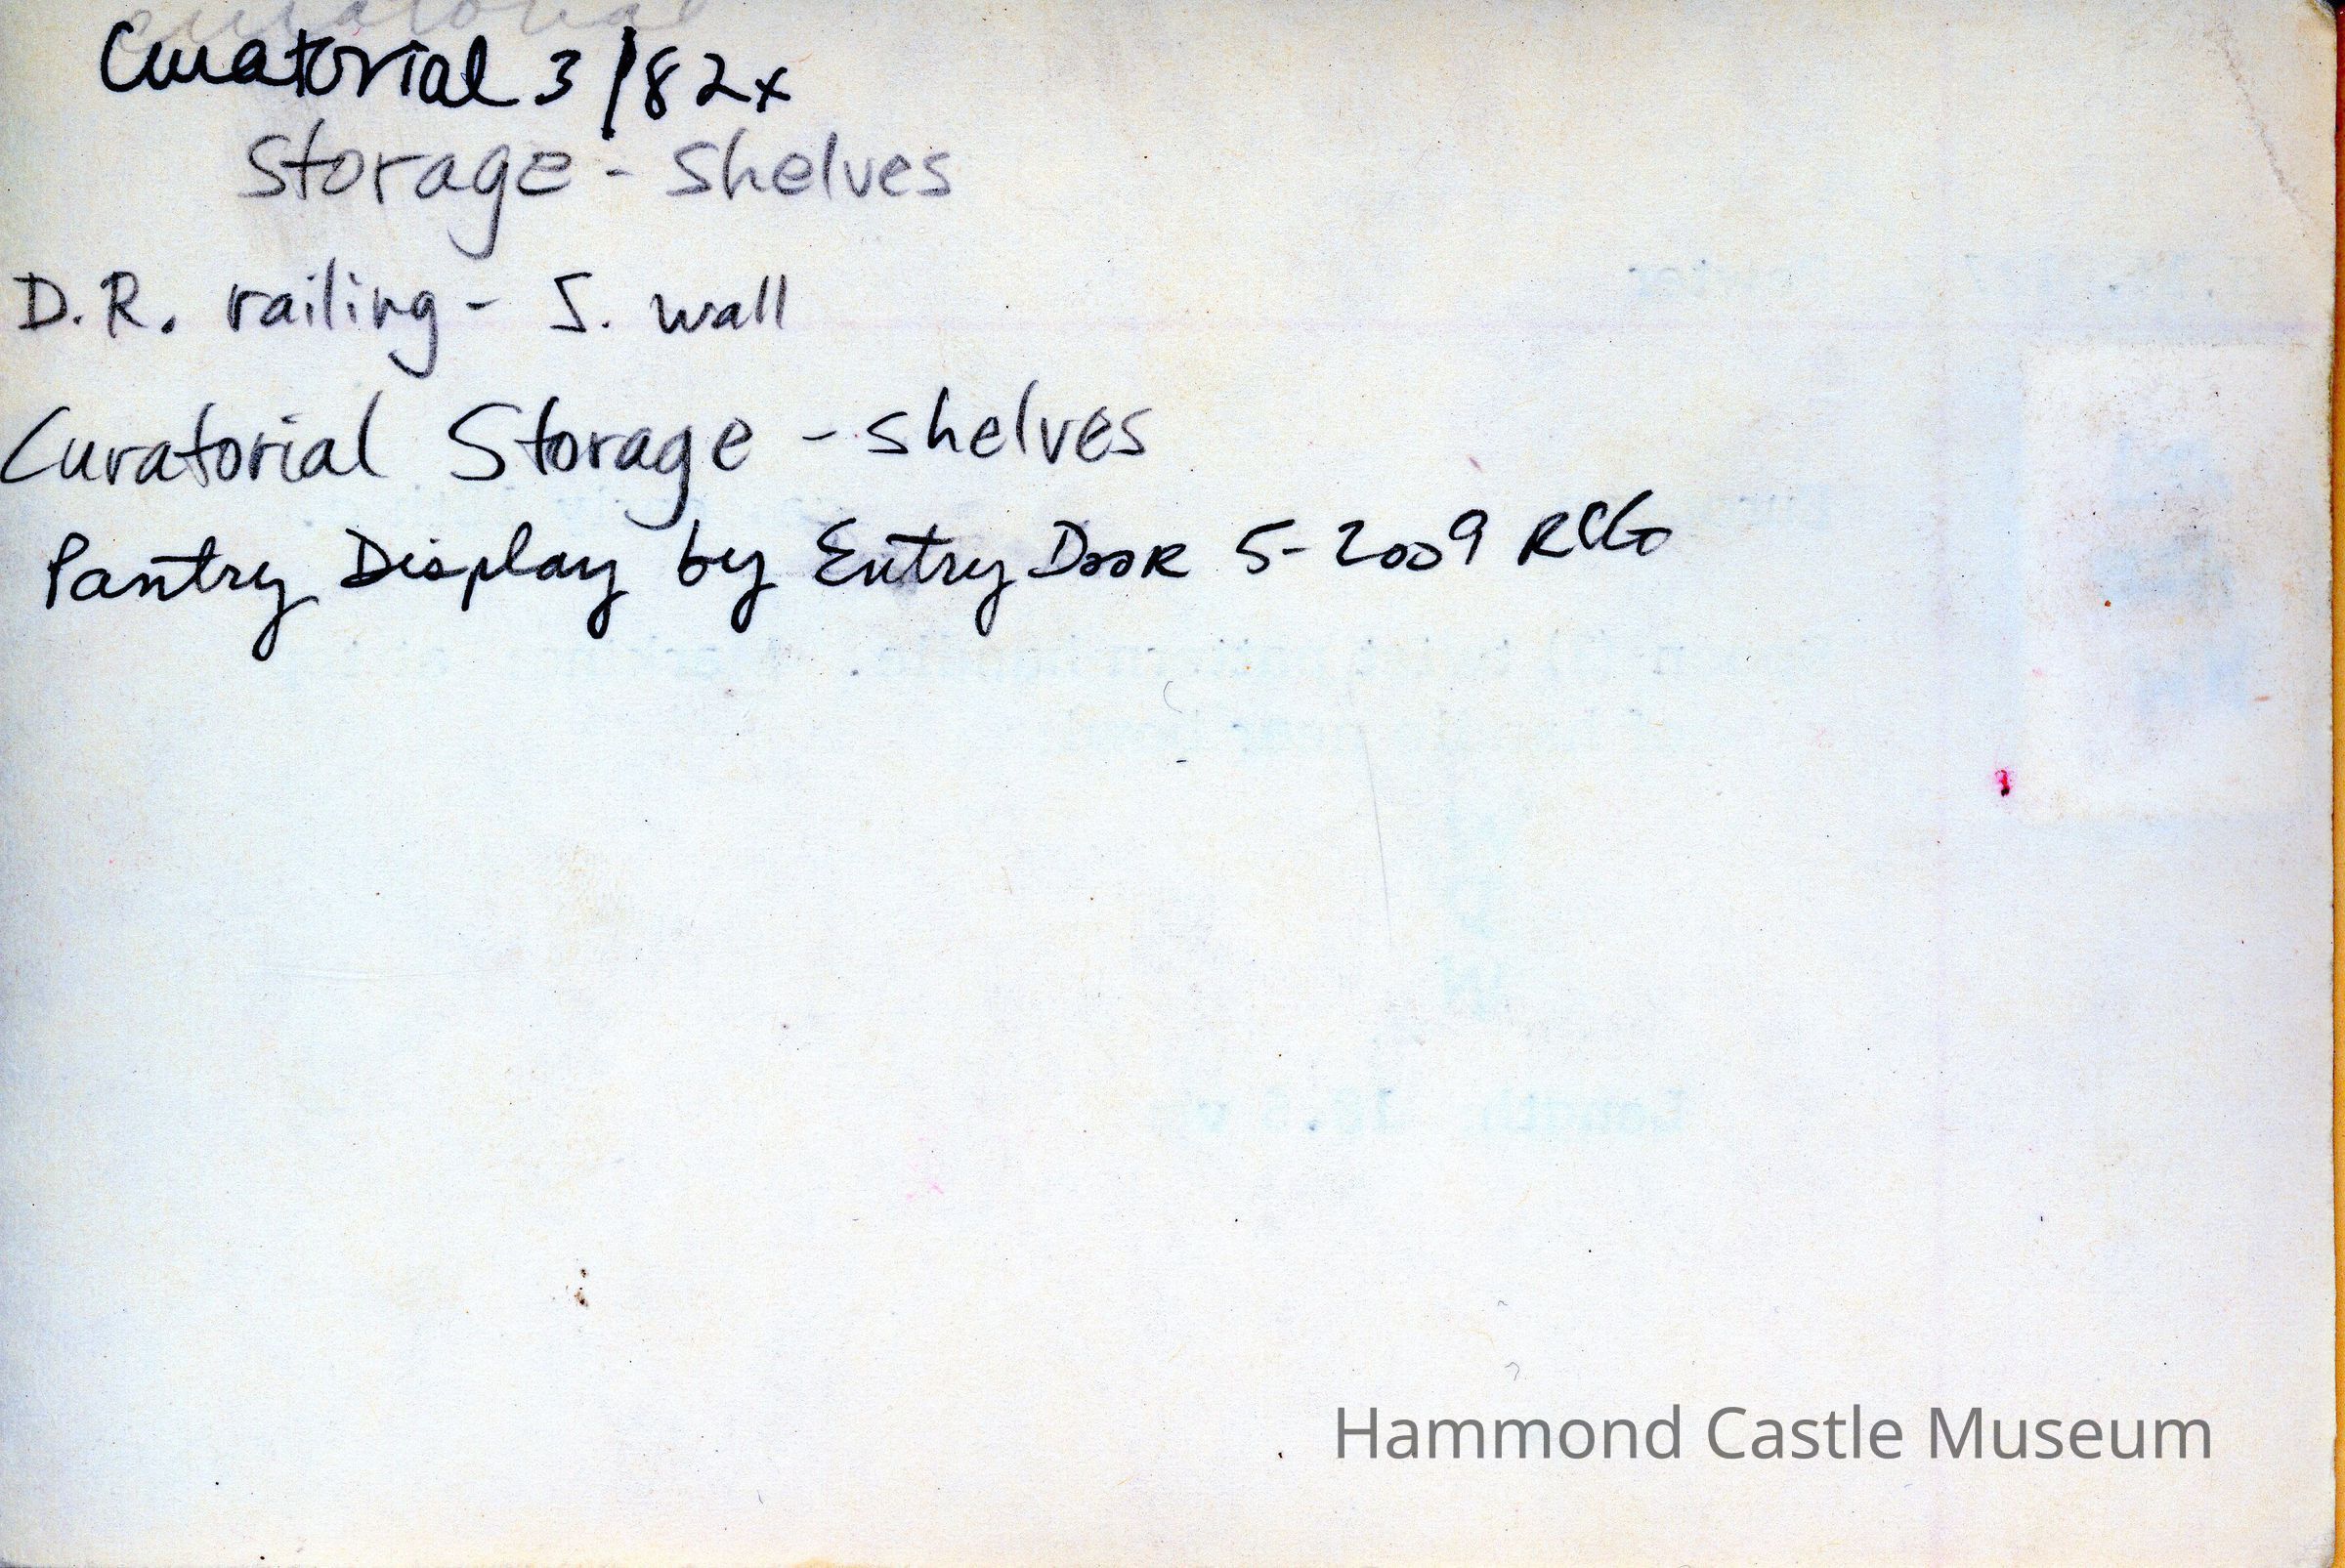 curatorial
Curatorial 3/82x
Storage - Shelves
D.R. railing - S. wall
Curatorial Storage - shelves
Pantry Display by Entry Door 5-2009 RCG
Hammond Castle Museum